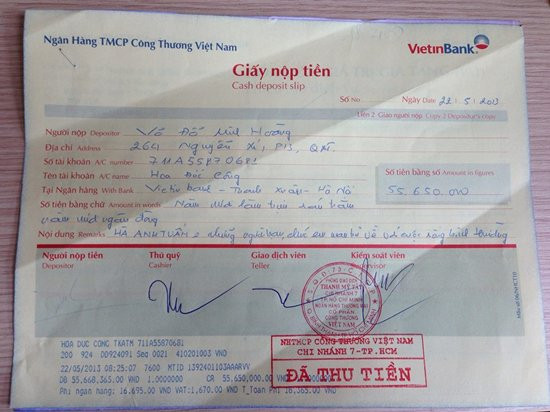 Ngân Hàng TMCP Công Thương Việt Nam
VietinBank
Giấy nộp tiền
Cash deposit slip
Số No
Ngày Date 22.5.2013
Liên 2 Giao người nộp Copy 2 Depositor's copy
Người nộp Depositor Võ Đỗ Minh Hoàng
Địa chỉ Address 264 Nguyễn Xí,
Số tài khoản A/C number 711A55870681
Tên tài khoản A/C name Hoa Đức Công
Số tiền bằng số Amount in figures
Tại Ngân hàng With Bank Vietinbank - Thanh Xuân - Hà Nội
55.650.000
Số tiền bằng chữ Amount in words Năm mươi lăm triệu sáu trăm
năm mươi ngàn đồng
Nội dung Remarks HÀ ANH TUẤN & những người bạn
Người nộp tiền
Depositor
Thủ quỹ
Cashier
Giao dịch viên
Teller
Kiểm soát viên
THANH MỸ TÂY
CHI NHÁNH 7
TP HỒ CHÍ MINH
NGÂN HÀNG THƯƠNG MẠI
CÔNG THƯƠNG
VIỆT NAM
HOA DUC CONG TKATM 711A55870681
200 924 DD924091 Seq 0021 410201003 VND
22/05/2013 08:25:07 7600 MTID 1392401103AAARVV
DD 55,668,365.00 1.0000000 CR 55,650,000.00 VND
Phi ngan hang: 16,695.00 VAT:1,670.00 VND T_Toan Phi 18,365.00 VND
NHTMCP CÔNG THƯƠNG VIỆT NAM
CHI NHÁNH 7-TP.HCM
ĐÃ THU TIỀN